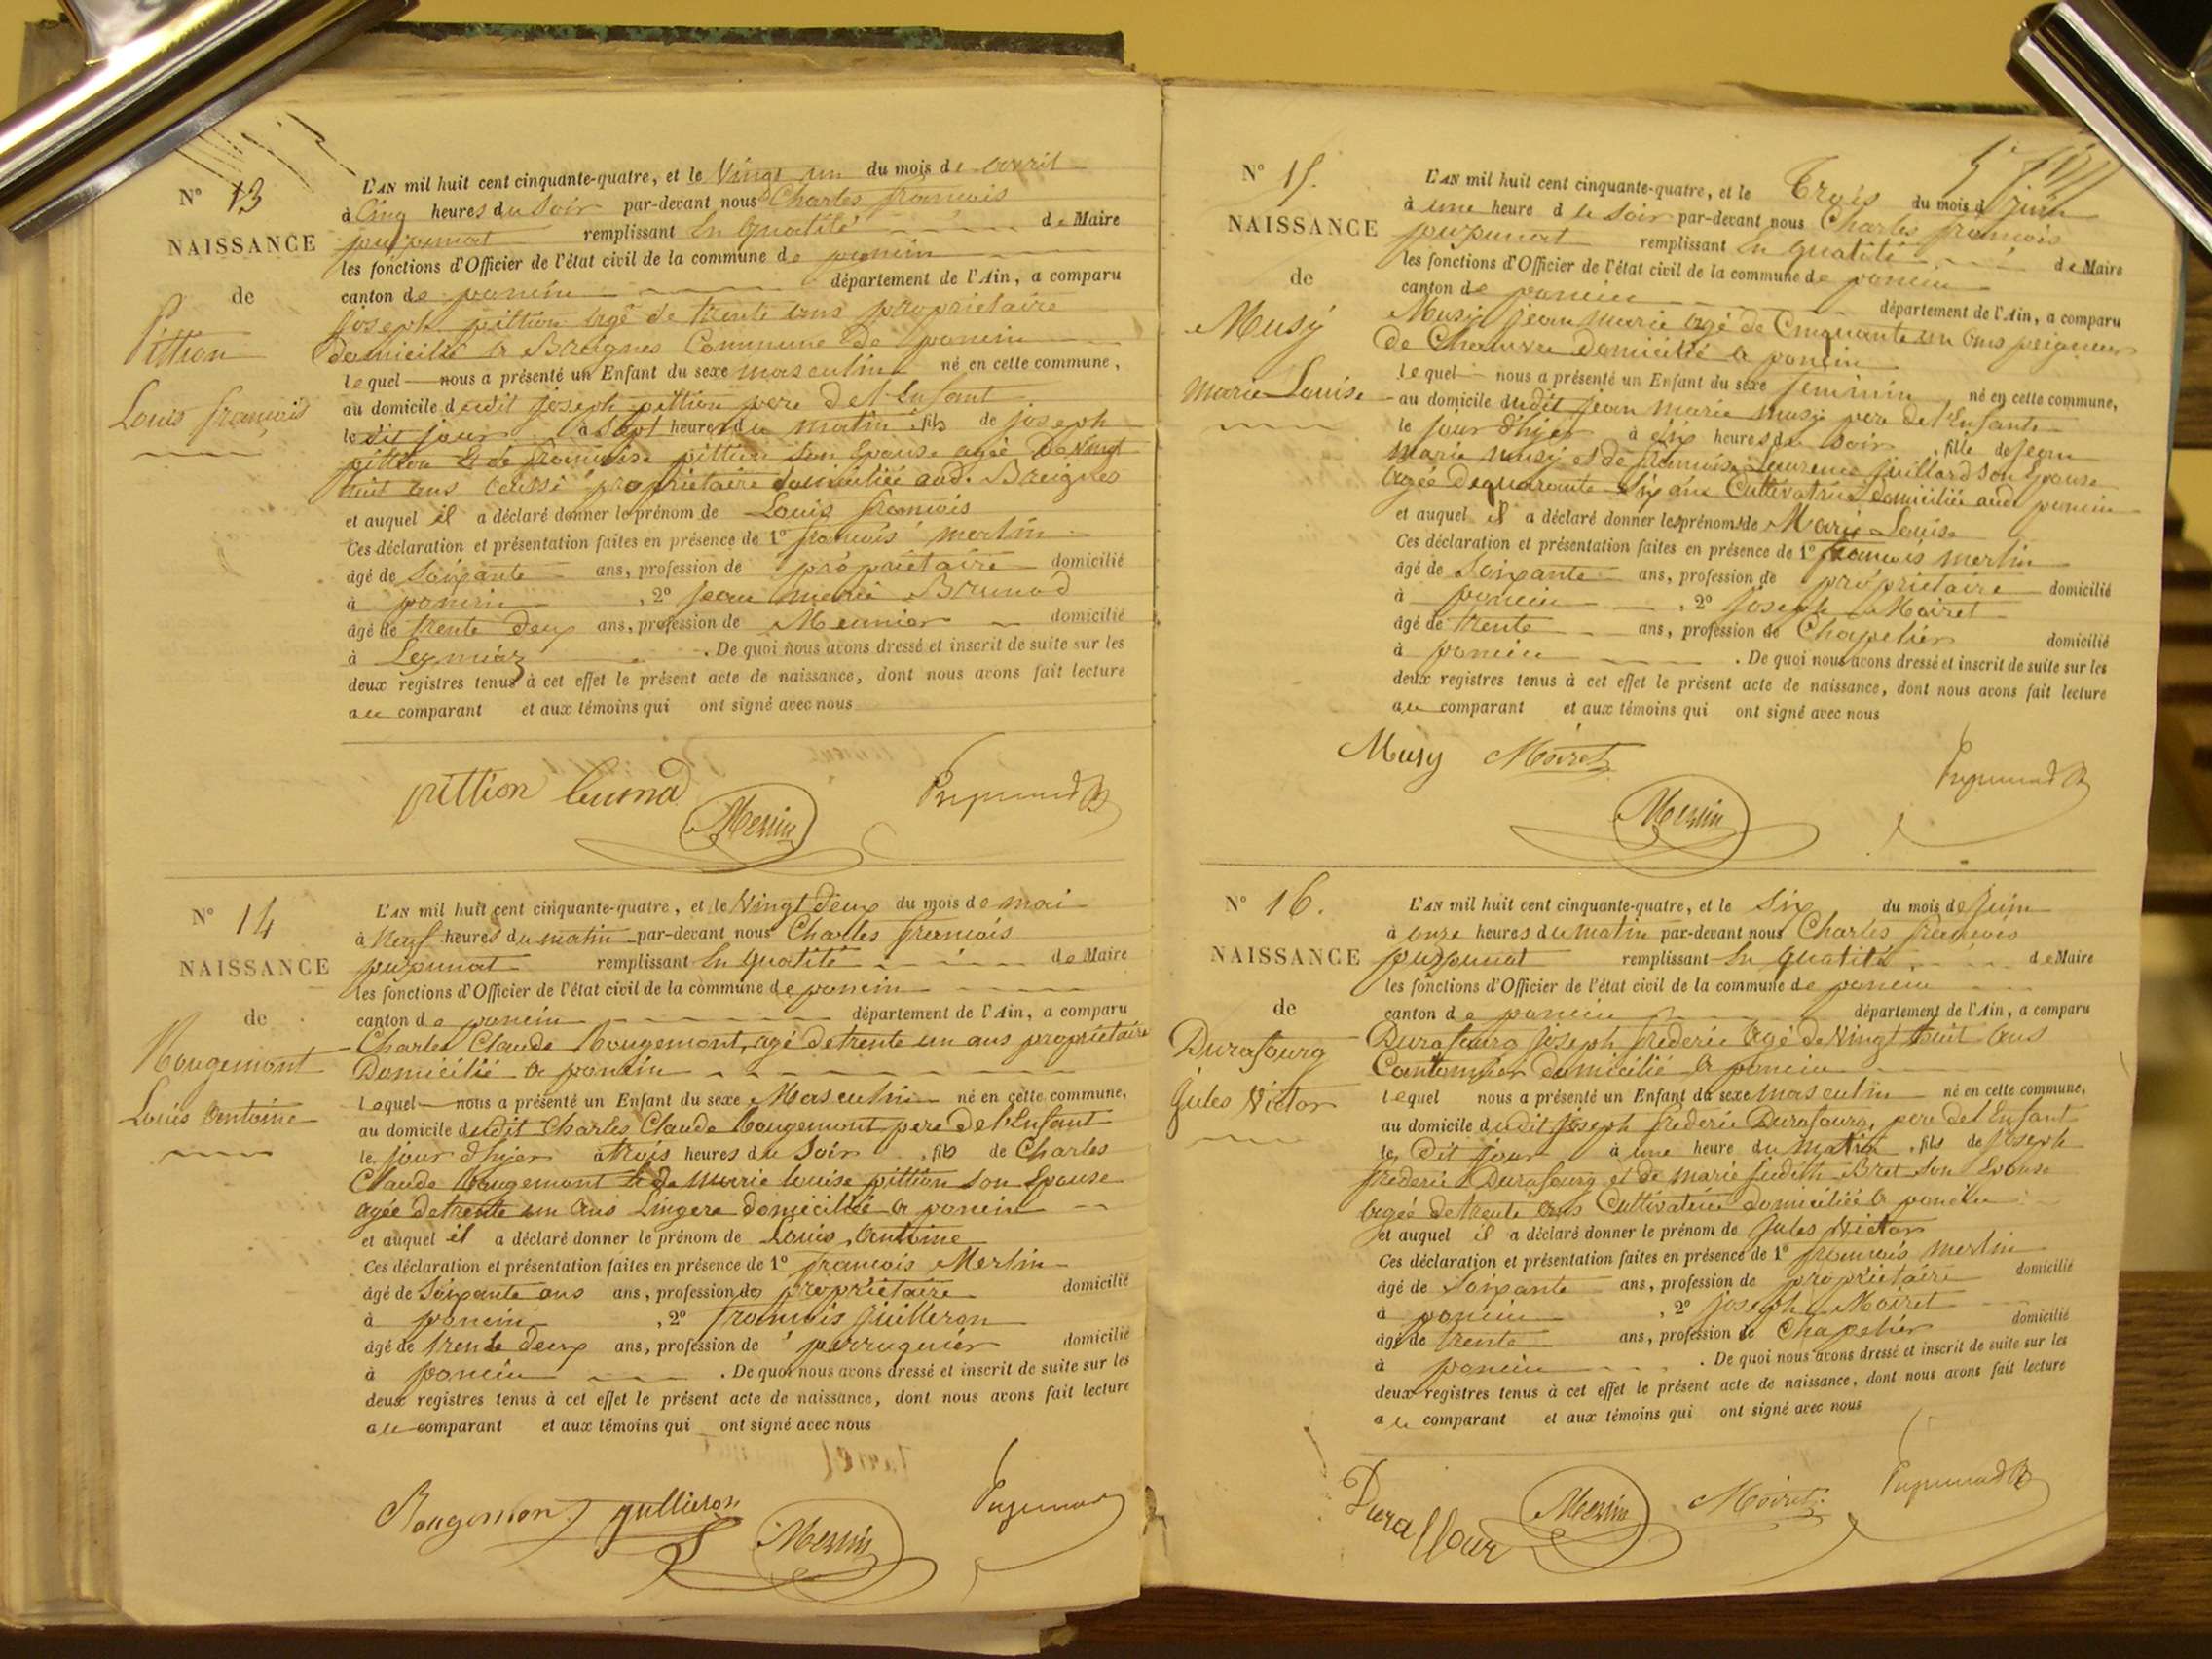 N° 13
NAISSANCE
de
Pittion
Louis françois
L'AN mil huit cent cinquante-quatre, et le Vingt un du mois de avril
à Cinq heures du Soir par-devant nous Charles françois
puypunat remplissant En qualité de Maire
les fonctions d'Officier de l'état civil de la commune de poncin
canton de poncin département de l'Ain, a comparu
joseph pittion agé de trente ans propriétaire
domicilié a Breignes Commune de poncin
lequel nous a présenté un Enfant du sexe masculin né en cette commune,
au domicile dudit joseph pittion pere del'Enfant
le dit jour à Sept heures du matin, fils de joseph
pittion et de françoise pittion son Epouse agée de vingt
huit ans aussi propriétaire domiciliée aud. Breignes
et auquel il a déclaré donner le prénom de Louis françois
Ces déclaration et présentation faites en présence de 1° françois merlin
âgé de Soixante ans, profession de propriétaire domicilié
à poncin, 2° jean marie Brunod
âgé de trente deux ans, profession de Meunier domicilié
à Leymiaz. De quoi nous avons dressé et inscrit de suite sur les
deux registres tenus à cet effet le présent acte de naissance, dont nous avons fait lecture
au comparant et aux témoins qui ont signé avec nous
pittion
Merlin
N° 14
NAISSANCE
de
Rougemont
Louis Antoine
L'AN mil huit cent cinquante-quatre, et le Vingt deux du mois de mai
à Neuf heures du matin par-devant nous Charles françois
puypunat remplissant En qualité de Maire
les fonctions d'Officier de l'état civil de la commune de poncin
canton de poncin département de l'Ain, a comparu
Charles Claude Rougemont, agé de trente un ans propriétaire
Domicilié a poncin
lequel nous a présenté un Enfant du sexe Masculin né en cette commune,
au domicile dudit Charles Claude Rougemont pere de l'Enfant
le jour d'hier à trois heures du Soir, fils de Charles
Claude Rougemont et de Marie louise pittion son Epouse
agée de trente un ans Lingere domiciliée a poncin
et auquel il a déclaré donner le prénom de Louis Antoine
Ces déclaration et présentation faites en présence de 1° françois Merlin
âgé de Soixante ans ans, profession de propriétaire domicilié
à poncin, 2° françois juilleron
âgé de trente deux ans, profession de perruquier domicilié
à poncin. De quoi nous avons dressé et inscrit de suite sur les
deux registres tenus à cet effet le présent acte de naissance, dont nous avons fait lecture
au comparant et aux témoins qui ont signé avec nous
Rougemont
Merlin
N° 15.
NAISSANCE
de
Musy
Marie Louise
L'AN mil huit cent cinquante-quatre, et le Trois du mois de juin
à une heure de Soir par-devant nous Charles françois
puypunat remplissant En qualité de Maire
les fonctions d'Officier de l'état civil de la commune de poncin
canton de poncin département de l'Ain, a comparu
Musy jean marie agé de Cinquante un ans peigneur
de Chanvre domicilié a poncin
lequel nous a présenté un Enfant du sexe feminin né en cette commune,
au domicile dudit jean marie musy pere de l'Enfant
le jour d'hier à six heures du soir, fille de jean
marie musy et de françoise Laurence juillard son Epouse
agée de quarante six ans Cultivatrice domiciliée aud. poncin
et auquel il a déclaré donner les prénoms de Marie Louise
Ces déclaration et présentation faites en présence de 1° françois merlin
âgé de Soixante ans, profession de propriétaire domicilié
à poncin, 2° joseph Moiret
âgé de trente ans, profession de Chapelier domicilié
à poncin. De quoi nous avons dressé et inscrit de suite sur les
deux registres tenus à cet effet le présent acte de naissance, dont nous avons fait lecture
au comparant et aux témoins qui ont signé avec nous
Musy Moiret
Merlin
N° 16.
NAISSANCE
de
Durafourg
Jules Victor
L'AN mil huit cent cinquante-quatre, et le Six du mois de Juin
à onze heures du matin par-devant nous Charles françois
puypunat remplissant En qualité de Maire
les fonctions d'Officier de l'état civil de la commune de poncin
canton de poncin département de l'Ain, a comparu
Durafourg joseph frederic agé de Vingt huit ans
Cantonnier domicilié a poncin
lequel nous a présenté un Enfant du sexe masculin né en cette commune,
au domicile dudit joseph frederic Durafourg, pere del'Enfant
le Dit jour à une heure du matin, fils de joseph
frederic Durafourg et de marie judith Bret son Epouse
agée de trente ans Cultivatrice domiciliée a poncin
et auquel il a déclaré donner le prénom de Jules Victor
Ces déclaration et présentation faites en présence de 1° françois merlin
âgé de Soixante ans, profession de propriétaire domicilié
à poncin, 2° joseph Moiret
âgé de trente ans, profession de Chapelier domicilié
à poncin. De quoi nous avons dressé et inscrit de suite sur les
deux registres tenus à cet effet le présent acte de naissance, dont nous avons fait lecture
au comparant et aux témoins qui ont signé avec nous
Duraffour Merlin Moiret